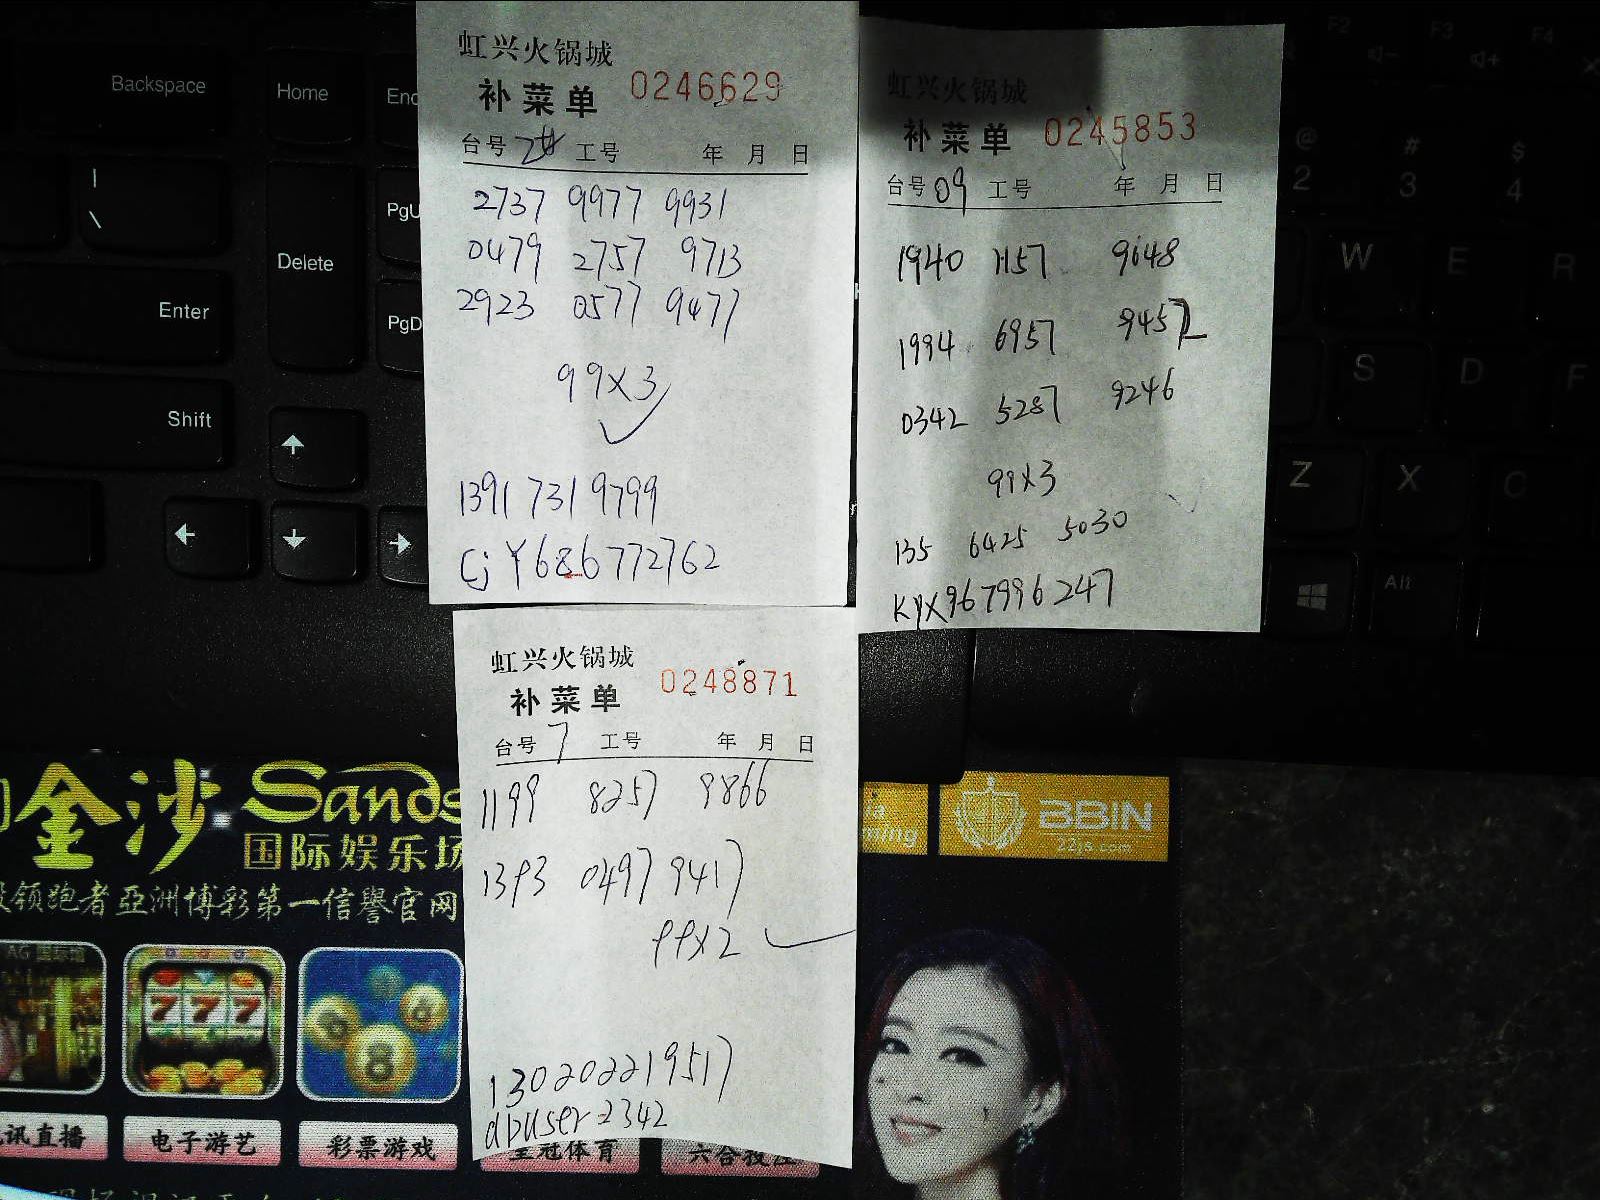 虹兴火锅城
补菜单 0246629
台号 2# 工号 年 月 日
2737 9977 9931
0479 2757 9713
2923 0577 9477
99x3
1391 731 9799
Cj Y686772762
虹兴火锅城
补菜单 0245853
台号 09 工号 年 月 日
1940 1157 9648
1994 6957 9457
0342 5287 9246
99x3
135 6425 5030
KyX967996247
虹兴火锅城
补菜单 0248871
台号 7 工号 年 月 日
1199 8257 9866
1393 0497 9417
99x2
130202219517
dpuser-2342
Backspace
Home
|
\
PgU
Delete
Enter
PgD
Shift
F2
F3
F4
@
2
#
3
$
4
W
E
R
S
D
F
Z
X
C
Alt
金沙 Sands
国际娱乐场
领跑者亞洲博彩第一信譽官网
BBIN
22js.com
AG 国际馆
777
8
讯直播
电子游艺
彩票游戏
皇冠体育
六合投注